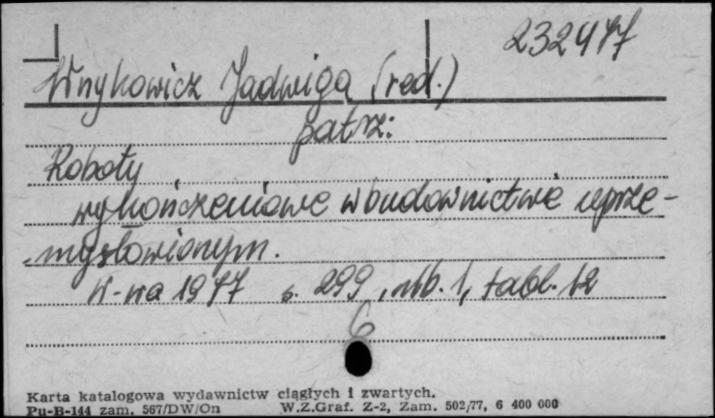 232477
Wnykowicz Jadwiga (red.)
patrz:
Roboty
wykończeniowe w budownictwie uprze-
mysłowionym.
W-wa 1977 s. 299, nlb. 1, tabl. 12
6
Karta katalogowa wydawnictw ciągłych i zwartych.
Pu-B-144 zam. 567/DW/On W.Z.Graf. Z-2, Zam. 502/77, 6 400 000